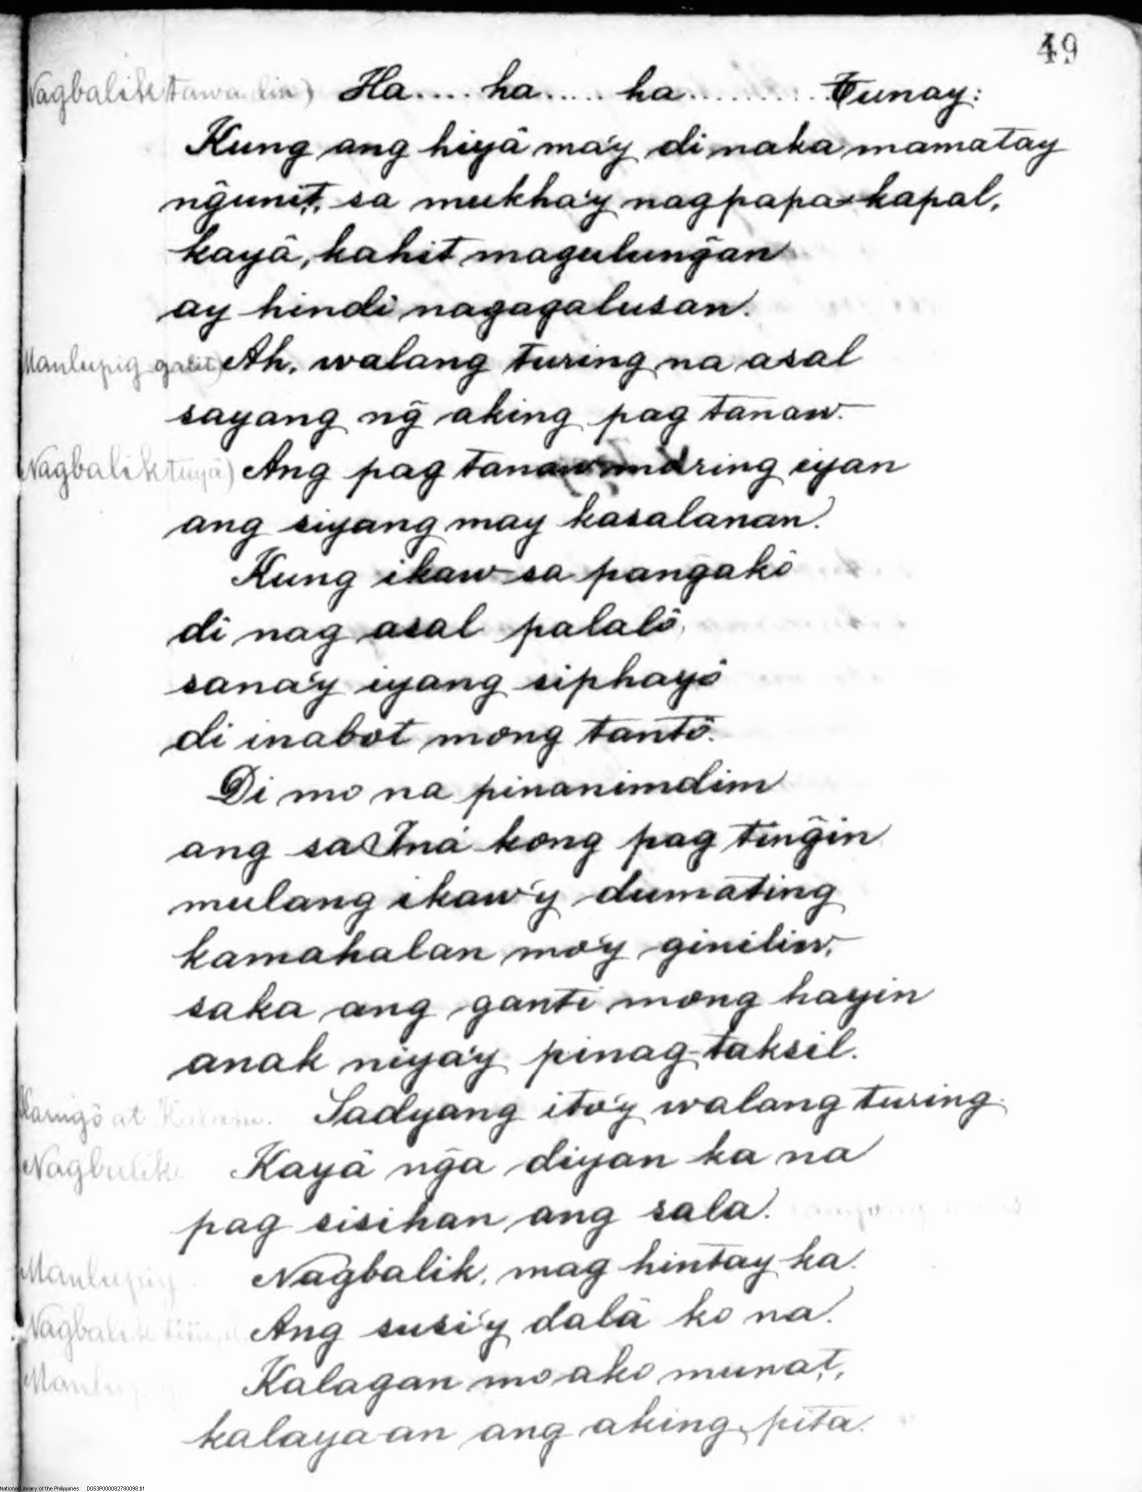 49
Nagbalik tawa Ha.... ha..... ha.......... Tunay:
Kung ang hiyâ ma'y di naka mamatay
ng̃unit, sa mukha'y nagpapa-kapal,
kayâ, kahit magulung̃an
ay hindi nagagalusan.
Manlupig galit) Ah, walang turing na asal
sayang ng̃ aking pag tanaw.
Nagbalik tuyâ) Ang pag tanaw maring iyan
ang siyang may kasalanan.
Kung ikaw sa pang̃akò
di nag asal palalò,
sana'y iyang siphayò
di inabot mong tantò.
Di mo na pinanimdim
ang sa Iná kong pag ting̃in
mulang ikaw'y dumating
kamahalan mo'y giniliw,
saka ang ganti mong hayin
anak niya'y pinag-taksil.
at Sadyang ito'y walang turing.
Nagbalik Kayâ ng̃a diyan ka na
pag sisihan ang sala.
Manlupig. Nagbalik, mag hintay ka.
Nagbalik Ang susi'y dalâ ko na.
Manlupig Kalagan mo ako muna't,
kalayaan ang aking pita.
National Library of the Philippines